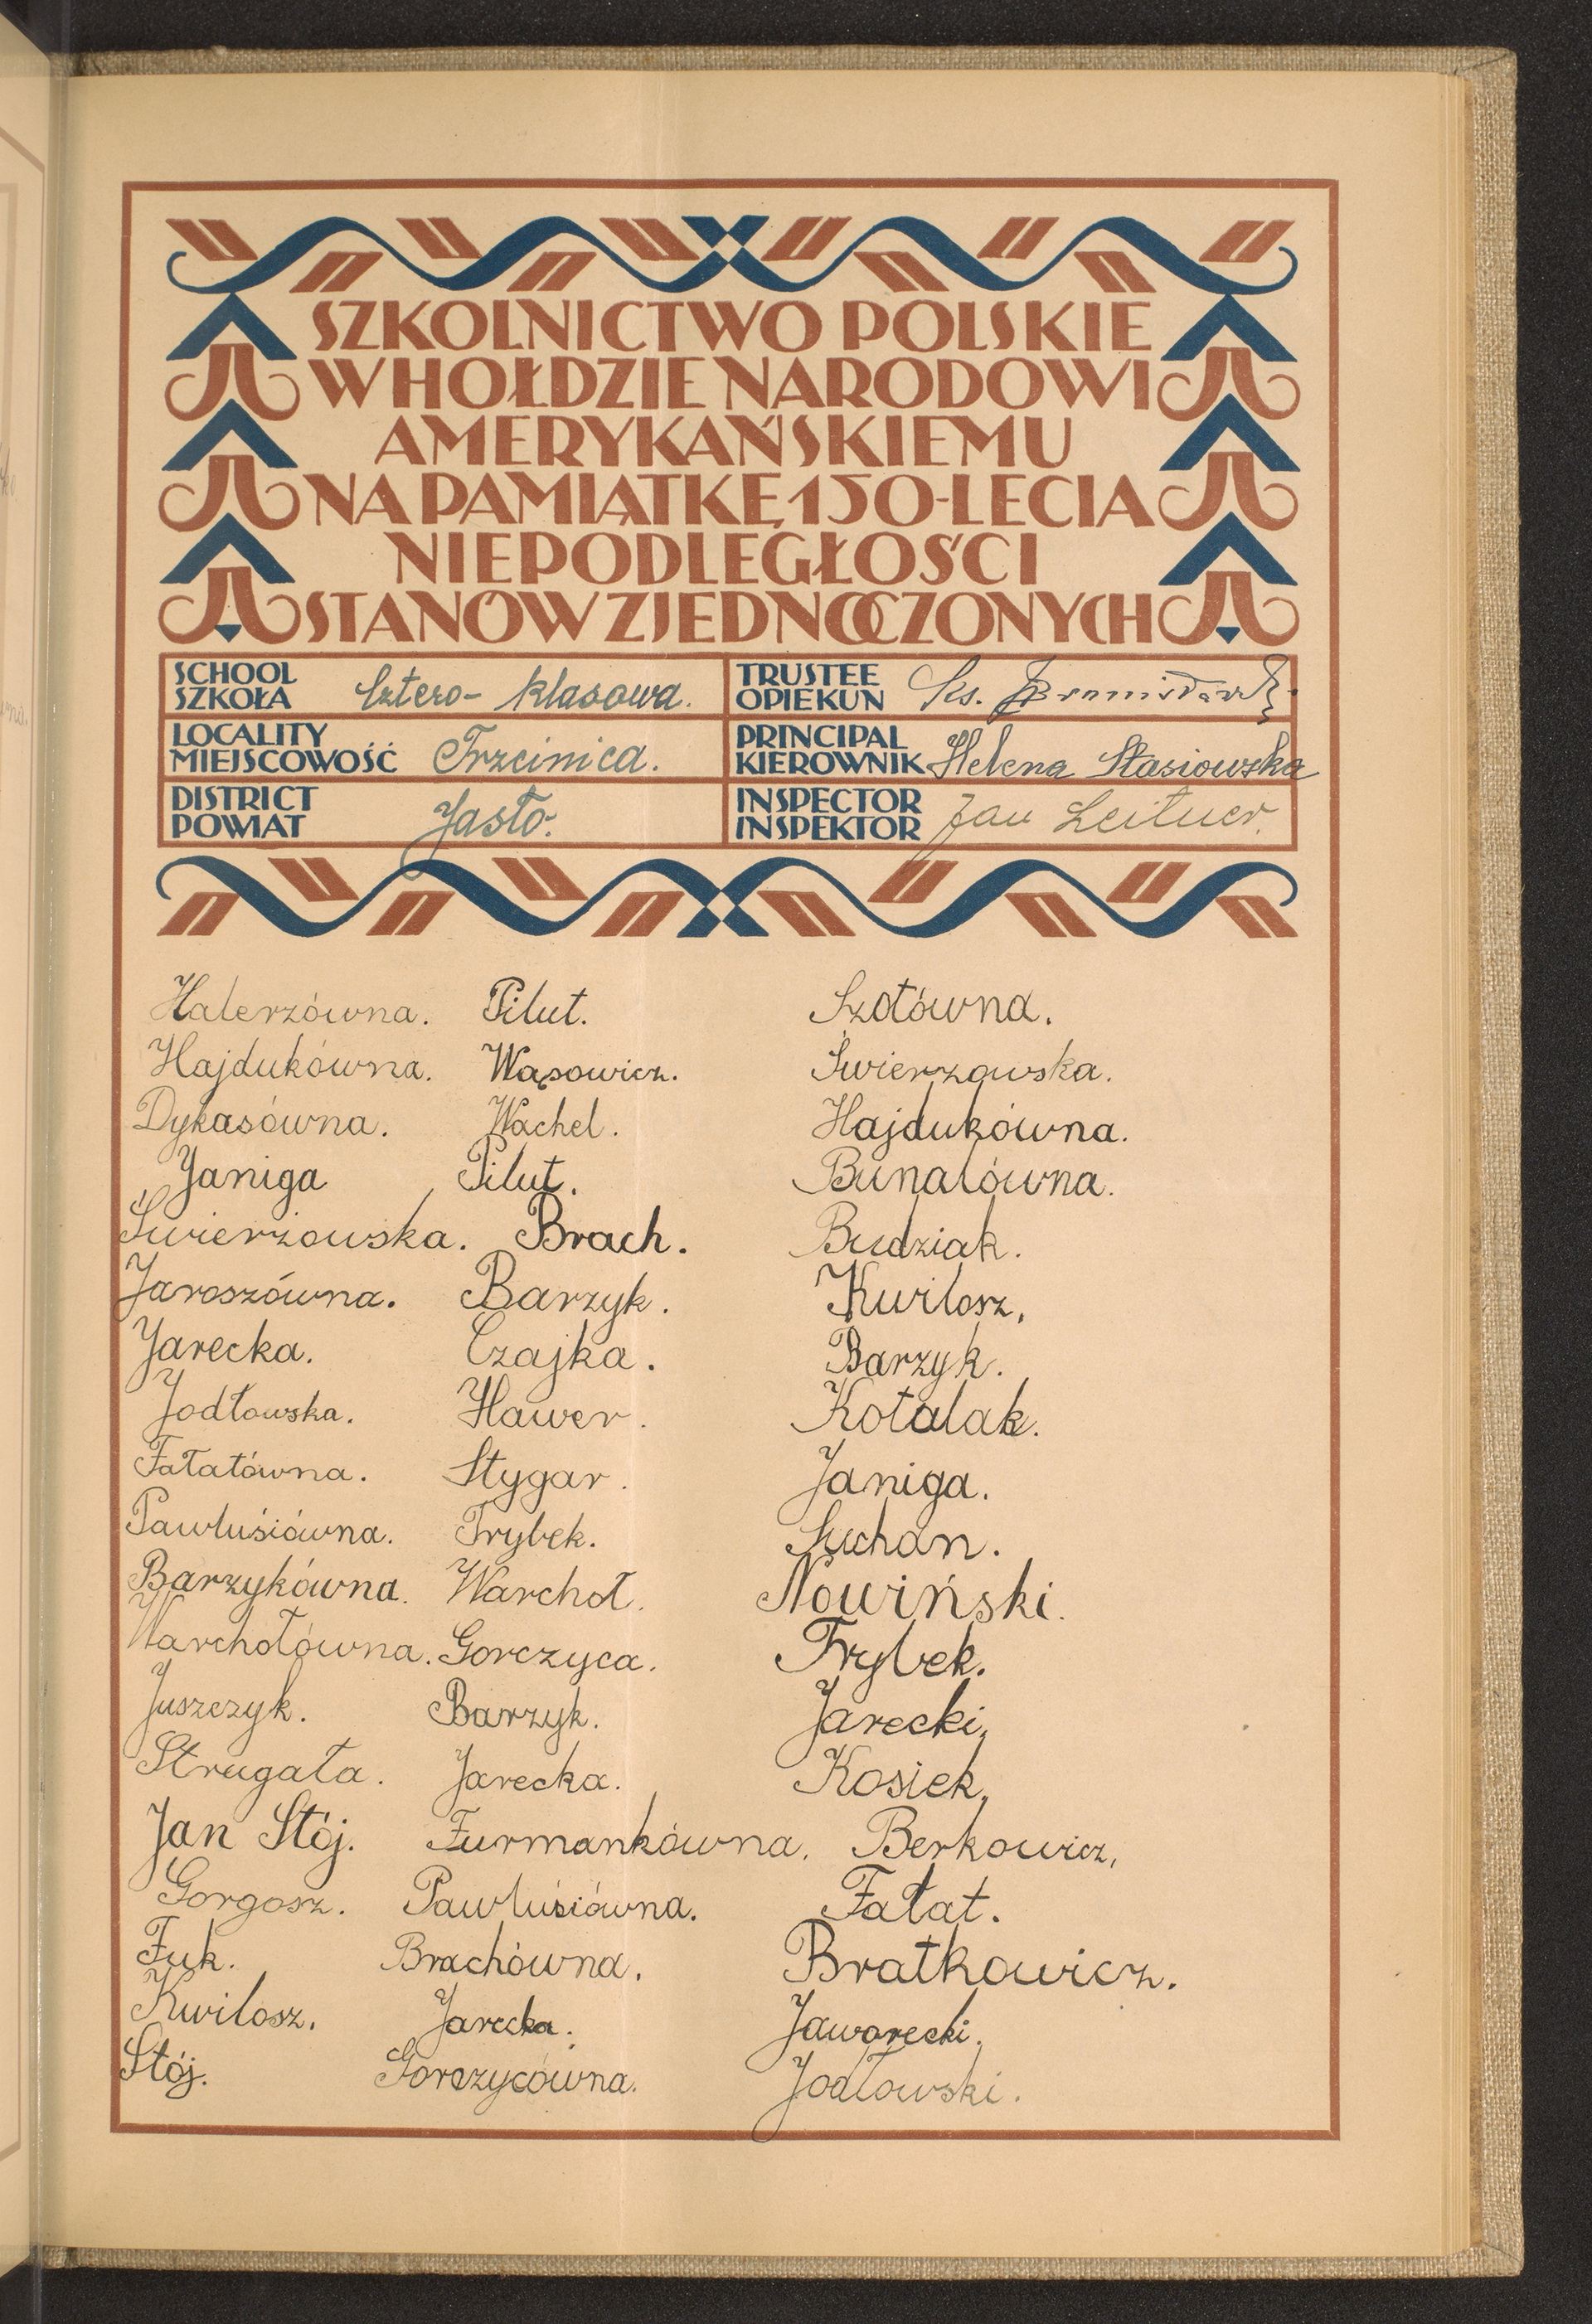 SZKOLNICTWO POLSKIE
W HOŁDZIE NARODOWI
AMERYKAŃSKIEMU
NA PAMIĄTKĘ 150-LECIA
NIEPODLEGŁOŚCI
STANÓW ZJEDNOCZONYCH
SCHOOL
SZKOŁA
Cztero-klasowa.
TRUSTEE
OPIEKUN
Ks.
LOCALITY
MIEJSCOWOŚĆ
Trzcinica.
PRINCIPAL
KIEROWNIK
Helena Stasiowska
DISTRICT
POWIAT
Jasło.
INSPECTOR
INSPEKTOR
Jan Leitner.
Halerzówna.
Hajdukówna.
Dykasówna.
Janiga
Świerzowska.
Jaroszówna.
Jarecka.
Jodłowska.
Fałatówna.
Pawluśiówna.
Barzykówna.
Warchołówna.
Juszczyk.
Strugała.
Jan Stój.
Gorgosz.
Fuk.
Kwilosz.
Stój.
Pilut.
Wąsowicz.
Wachel.
Pilut.
Brach.
Barzyk.
Czajka.
Hawer.
Stygar.
Trybek.
Warchoł.
Gorczyca.
Barzyk.
Jarecka.
Furmankówna.
Pawluśiówna.
Brachówna.
Jarecka.
Gorczycówna.
Szotówna.
Świerzowska.
Hajdukówna.
Bunalówna.
Budziak.
Kwilosz.
Barzyk.
Kotalak.
Janiga.
Suchan.
Nowiński.
Trybek.
Jarecki.
Kosiek.
Berkowicz.
Fałat.
Bratkowicz.
Jaworecki.
Jodłowski.